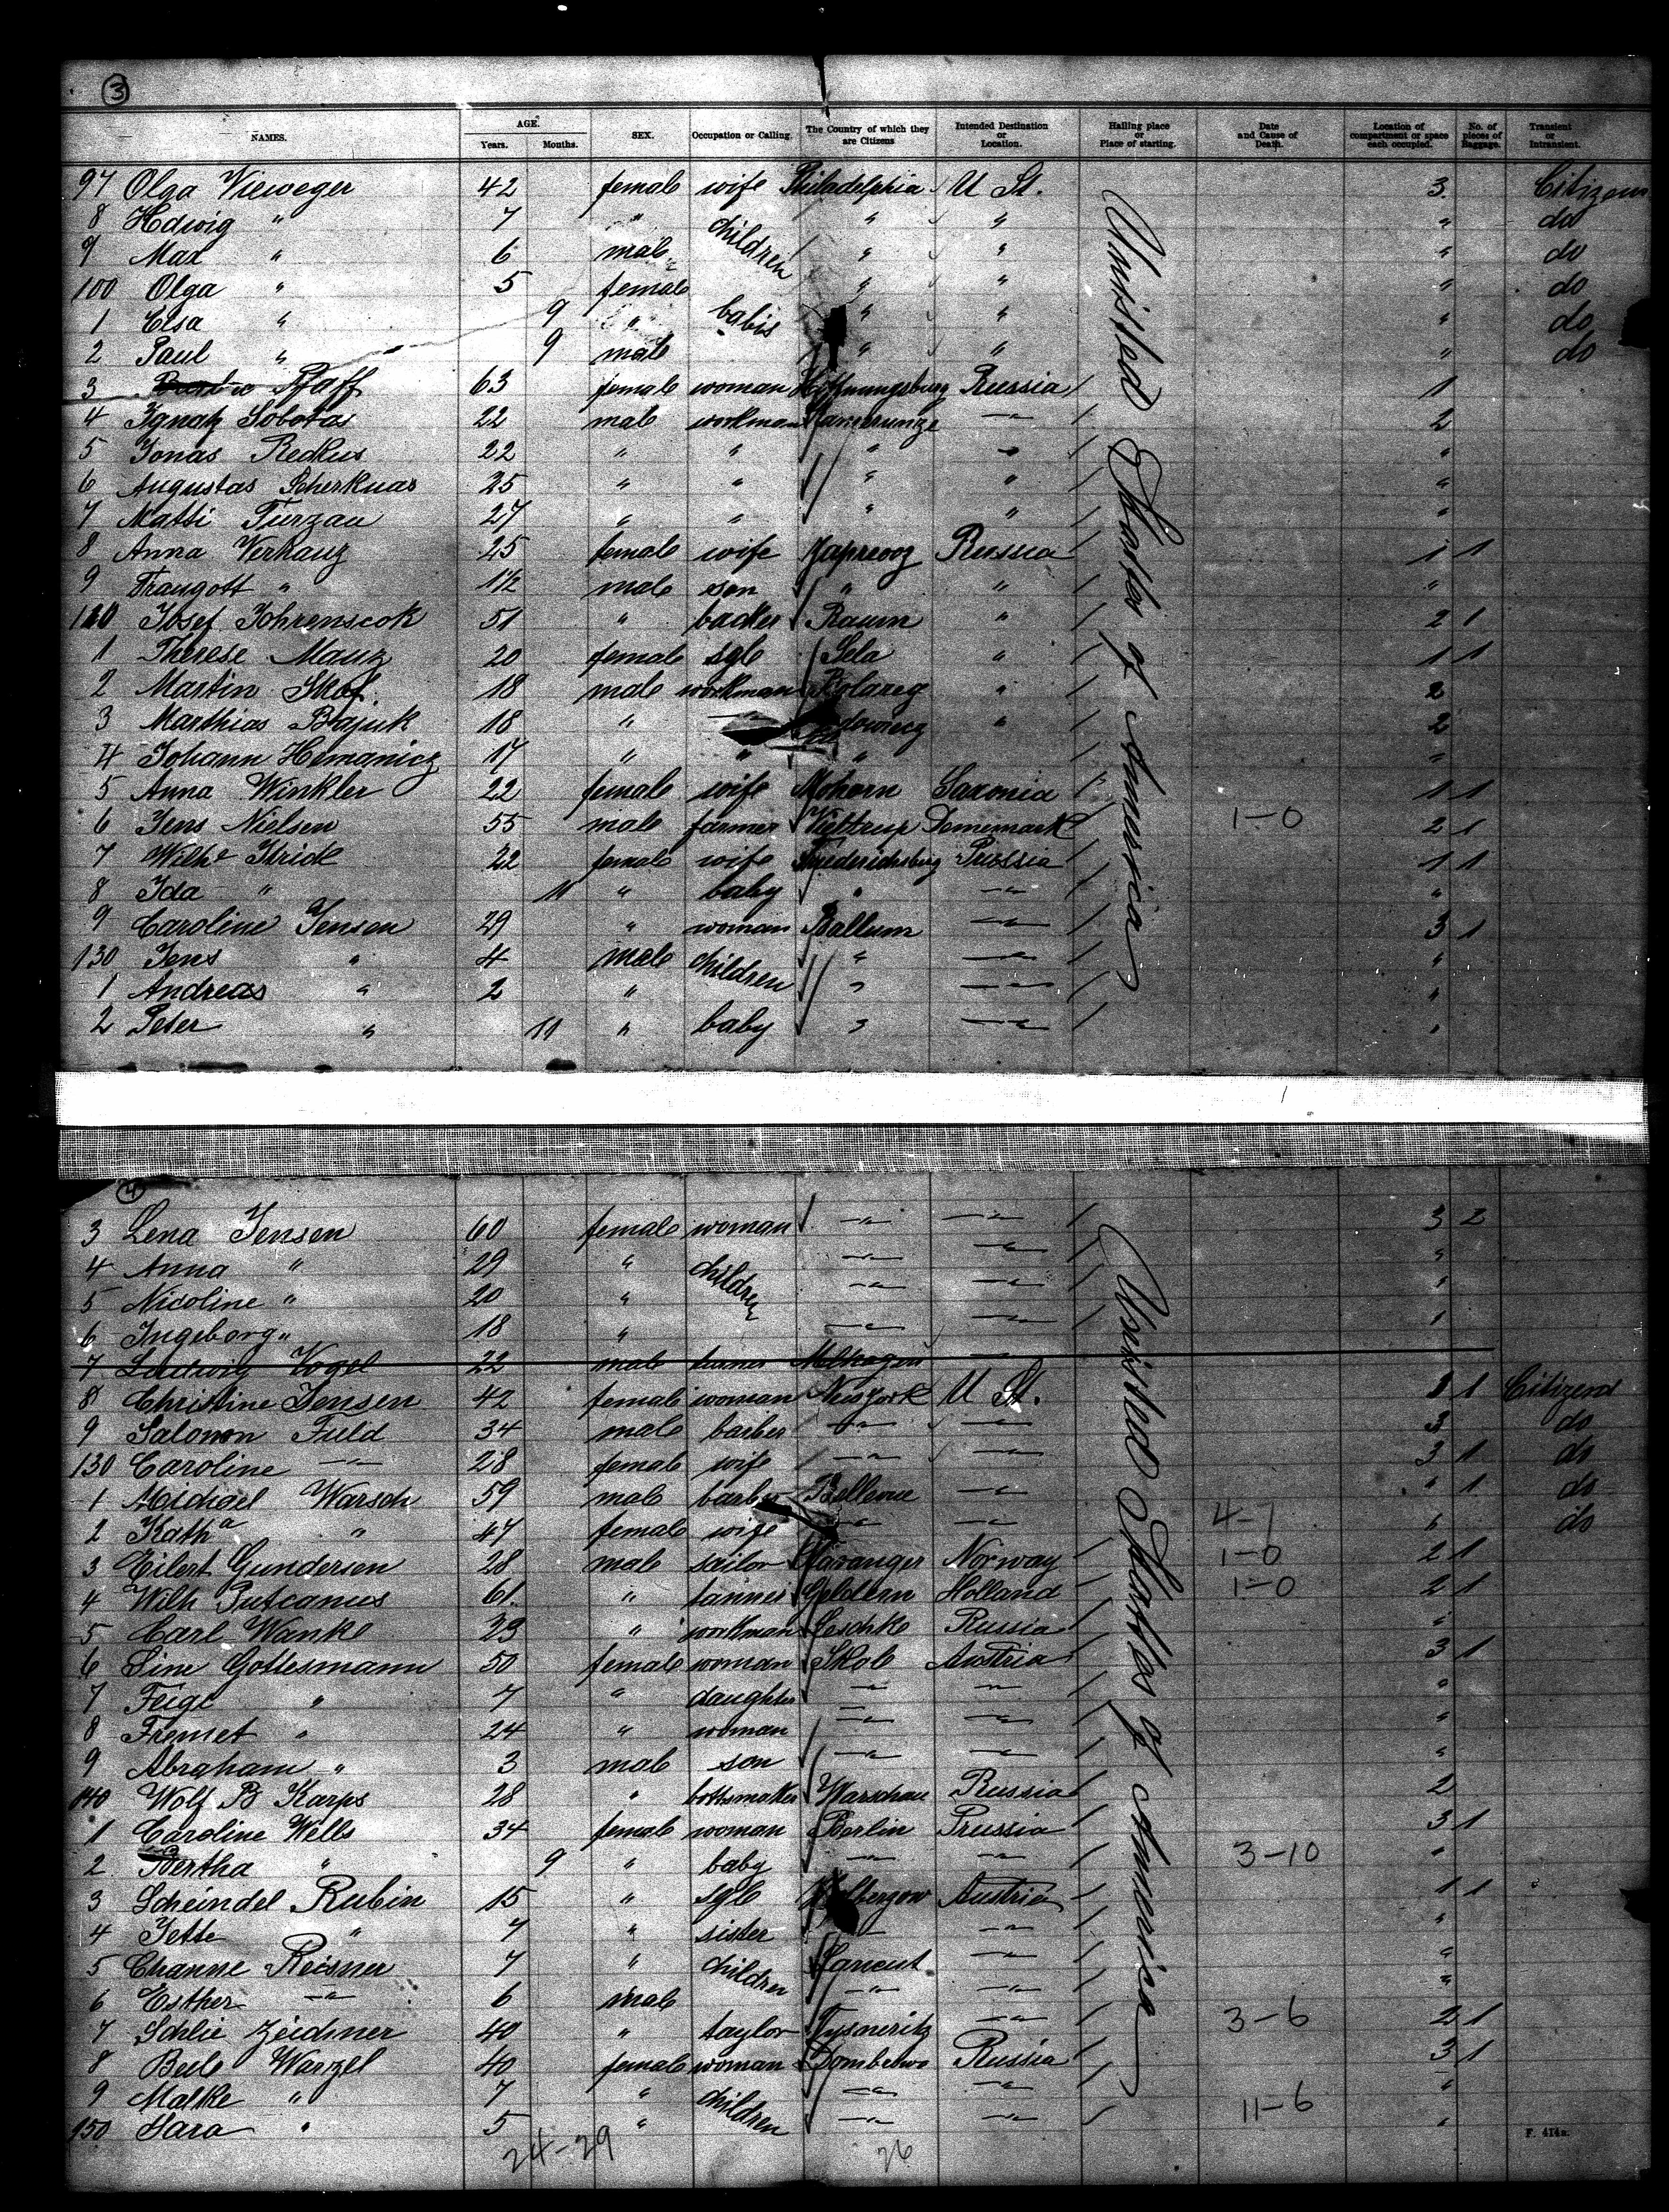 3
NAMES. AGE. Years. Months. SEX. Occupation or Calling. The Country of which they are Citizens Intended Destination or Location. Hailing place or Place of starting. Date and Cause of Death. Location of compartment or space each occupied. No. of pieces of Baggage. Transient or Intransient.
97 Olga Vieweger 42 female wife Philadelphia U St. 3. Citizens
8 Hedwig " 7 " children " " " do
9 Max " 6 male " " " do
100 Olga " 5 female " " " do
1 Elsa " 9 " babis " " " do
2 Paul " 9 male " " " do
3 Pfaff 63 female woman Hoffnungsburg Russia 1
4 Ignatz Sobotas 22 male workman —"— 2
5 Jonas Redkus 22 " " " " "
6 Augustas Scherknas 25 " " " " "
7 Matti Turzau 27 " " " " "
8 Anna Verkauz 25 female wife Russia 1 1
9 Traugott " 1½ male son " " "
110 Josef Johrenscok 51 " backer Raum " 2 1
1 Therese Mauz 20 female sgle Sela " 1 1
2 Martin 18 male workman " 2
3 Marthias Bajuk 18 " —"— " 2
4 Johann Hemanicz 17 " " " "
5 Anna Winkler 22 female wife Mohorn Saxonia 1 1
6 Jens Nielsen 55 male farmer Denemark 1-0 2 1
7 Wilhe 22 female wife Friederichsburg Prussia 1 1
8 Ida " 11 " baby " —"— "
9 Caroline Jensen 29 " woman Ballum —"— 3 1
130 Jens " 4 male children " —"— "
1 Andreas " 2 " " —"— "
2 Peter " 11 " baby " —"— "
United States of America
4
3 Lena Jensen 60 female woman —"— —"— 3 2
4 Anna " 29 " children —"— —"— "
5 Nicoline " 20 " —"— —"— "
6 Ingeborg " 18 " —"— —"— "
7 Ludwig Vogel 22 male —
8 Christine Jensen 42 female woman New York U St. 1 1 Citizens
9 Salomon Fuld 34 male barber —"— —"— 3 do
130 Caroline —"— 28 female wife —"— —"— 3 1 do
1 Michael Warsch 59 male barber Bellevue —"— " 1 do
2 Katha " 47 female wife —"— —"— 4-1 " do
3 Eilert Gundersen 28 male sailor Stavanger Norway 1-0 2 1
4 Wilh Putcanus 61. " tanner Geldern Holland 1-0 2 1
5 Carl Wanke 23 " workman Leschke Russia "
6 Line Gottesmann 50 female woman Skole Austria 3 1
7 Feige " 7 " daughter —"— —"— "
8 Fremet " 24 " woman —"— —"— "
9 Abraham " 3 male son —"— —"— "
140 Wolf B Karps 28 " bottsmaker Warschau Russia 2
1 Caroline Wells 34 female woman Berlin Prussia 3 1
2 Bertha " 9 " baby —"— —"— 3-10 "
3 Scheindel Rubin 15 " sgle Austria 1 1
4 Jette " 7 " sister — —"— "
5 Channe Reisner 7 " children Lancut —"— "
6 Esther —"— 6 male —"— —"— "
7 Schlie Zeidner 40 " taylor —"— 3-6 2 1
8 Beile Warzel 40 female woman Dombrowo Russia 3 1
9 Malke " 7 " children —"— —"— "
150 Sara " 5 " —"— —"— 11-6 "
United States of America
24-29 26
F. 414a.